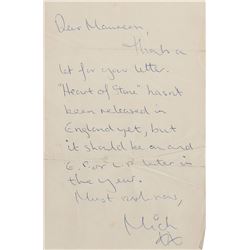 Dear Maureen,
Thanks a
lot for your letter.
"Heart of Stone" hasnt
been released in
England yet, but
it should be on and
E.P. or L.P. later in
the year.
Must rush now,
Mick